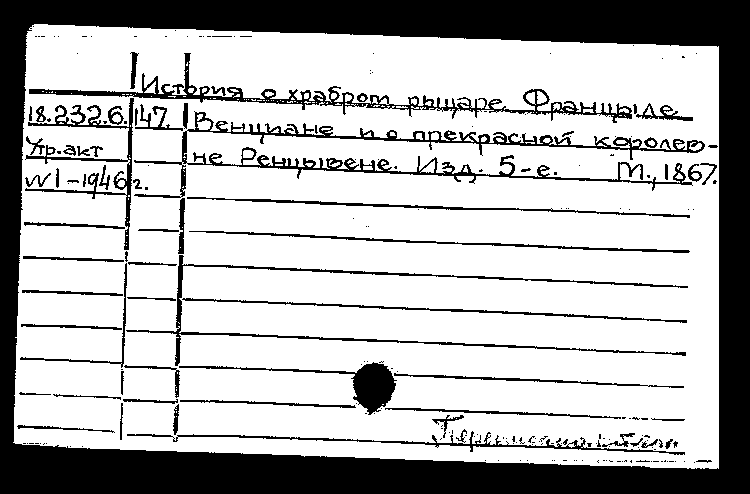 История о храбром рыцаре Францыле
18.232.6.147. Венциане и о прекрасной королев-
Упр.акт не Ренцывене. Изд. 5-е. М., 1867.
№1-1946г.